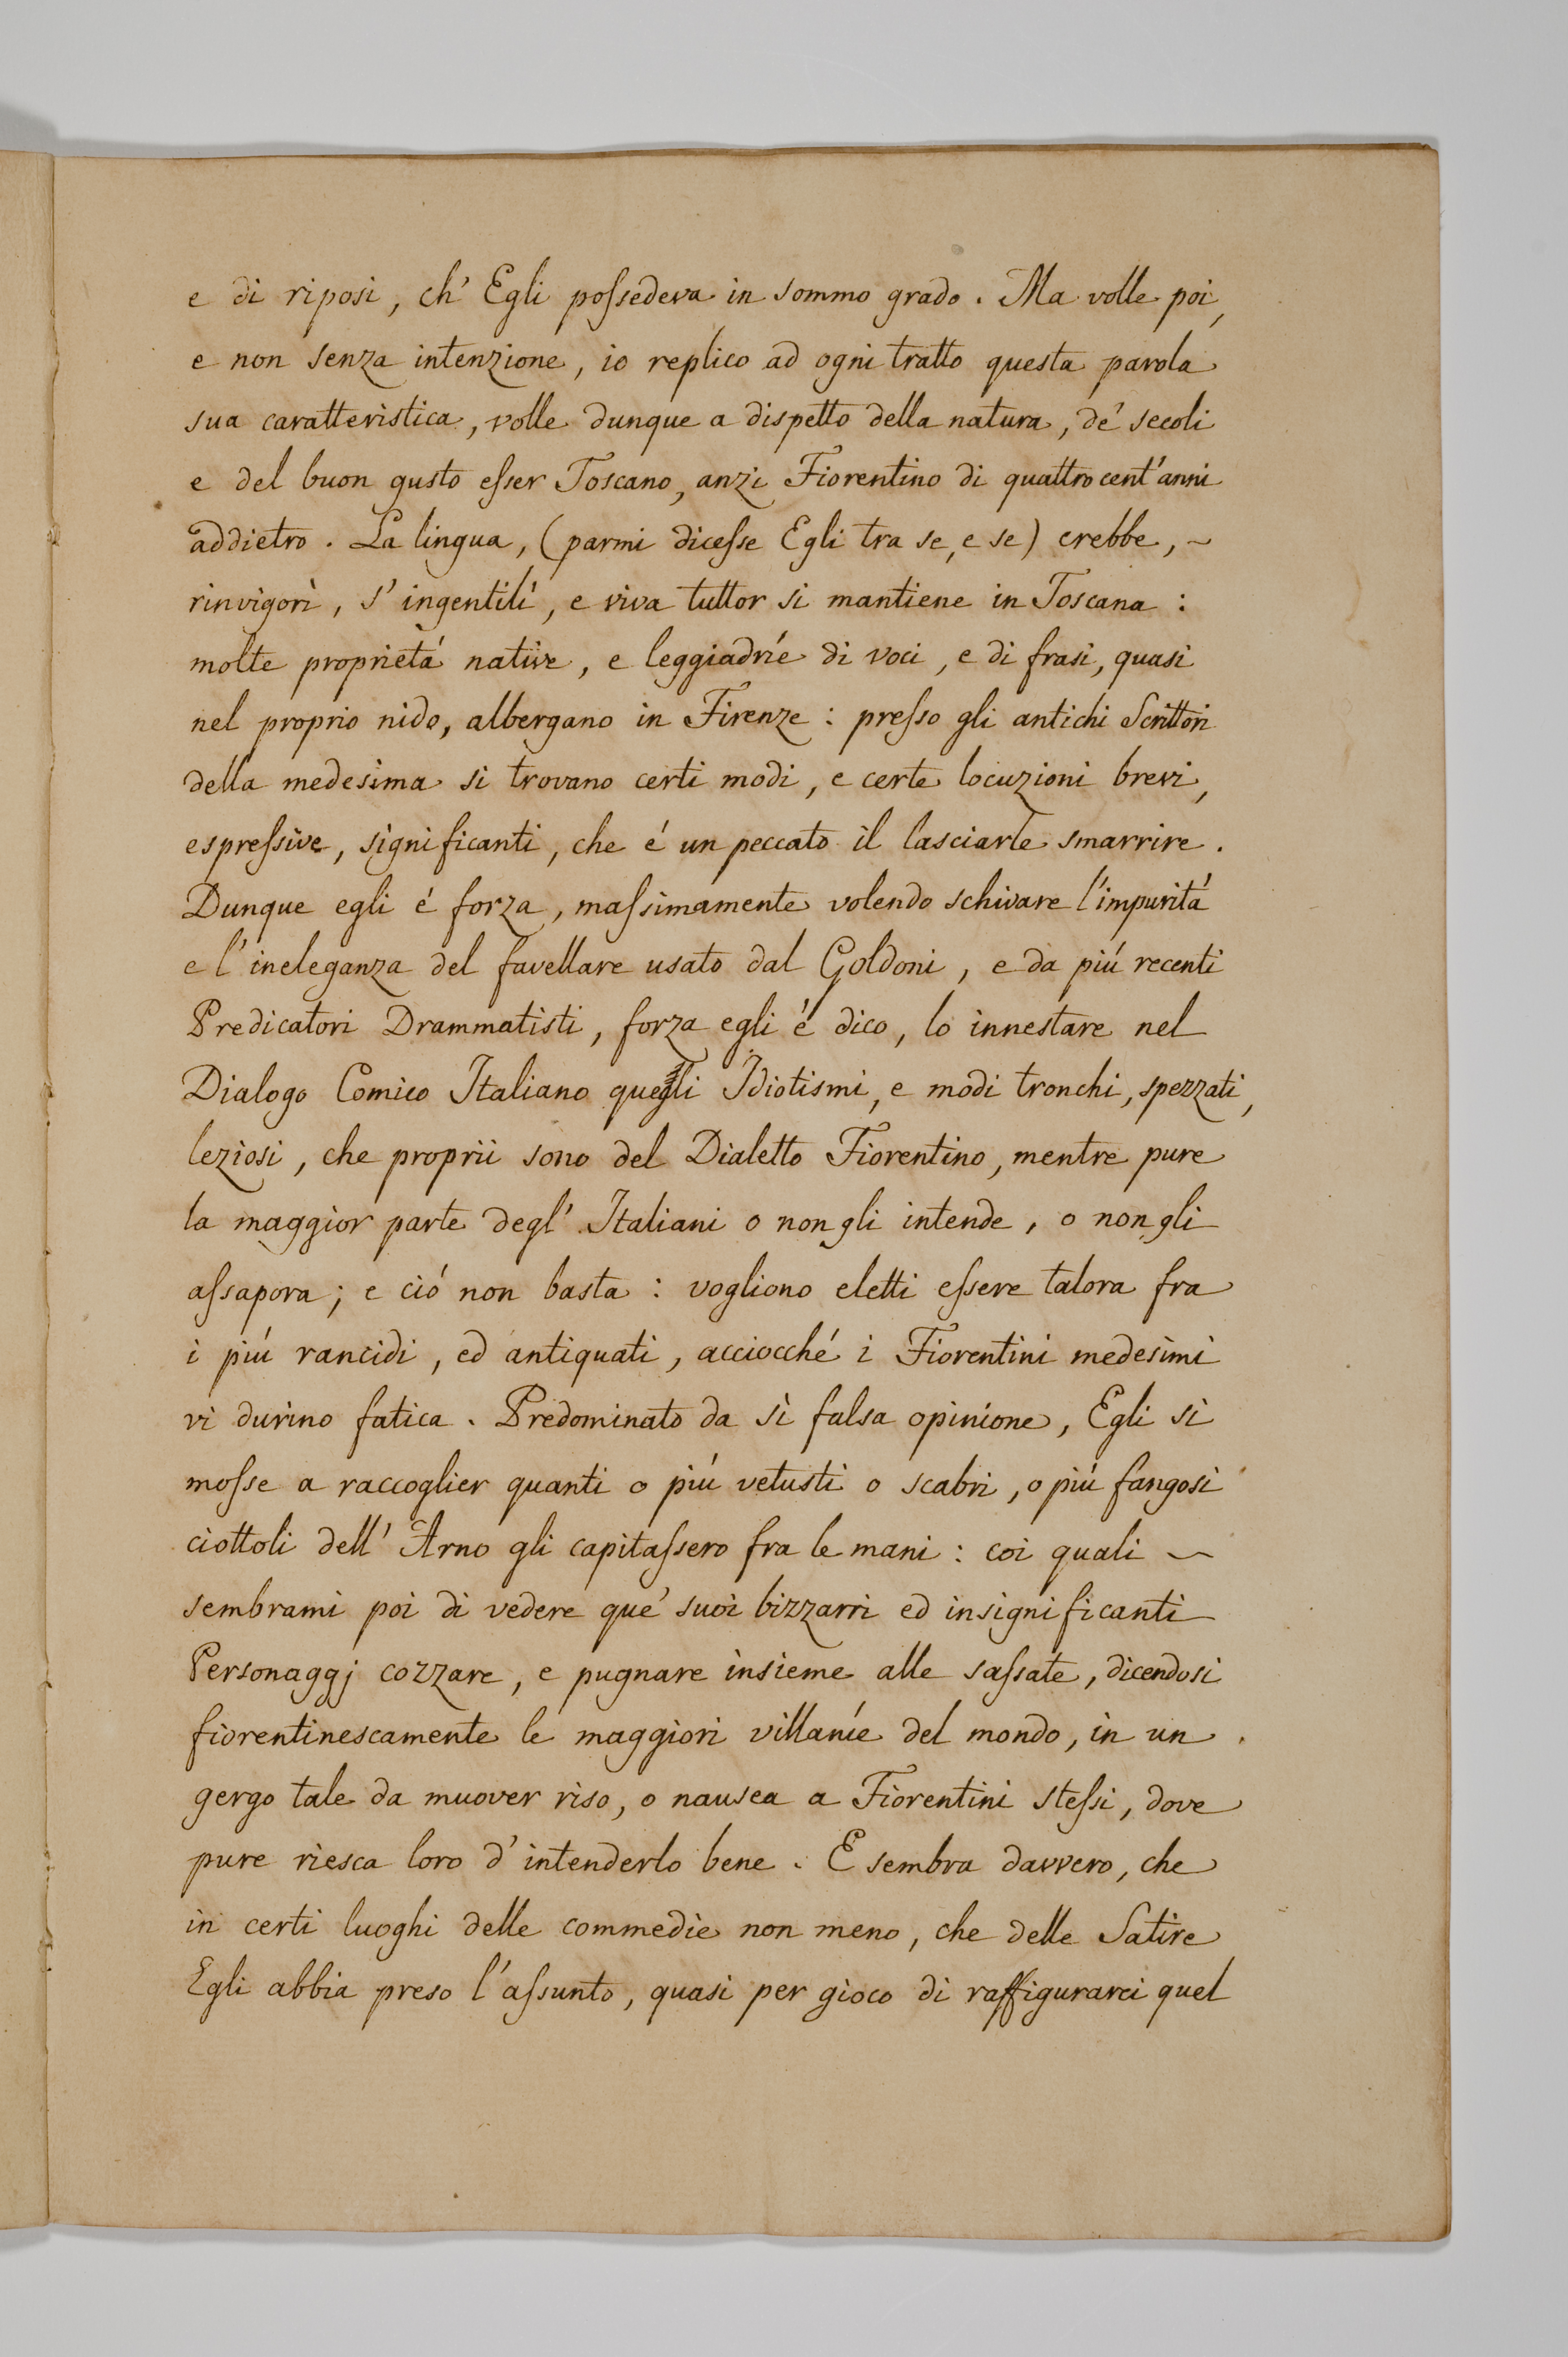 e di riposi, ch' Egli poſsedeva in sommo grado. Ma volle poi,
e non senza intenzione, io replico ad ogni tratto questa parola
sua caratteristica, volle dunque a dispetto della natura, de' secoli
e del buon gusto eſser Toscano, anzi Fiorentino di quattrocent'anni
addietro. La lingua, (parmi diceſse Egli tra se, e se) crebbe, ~
rinvigorì, s' ingentilí, e viva tuttor si mantiene in Toscana :
molte proprietá native, e leggiadríe di voci, e di frasi, quasi
nel proprio nido, albergano in Firenze : preſso gli antichi Scrittori
della medesima si trovano certi modi, e certe locuzioni brevi,
espreſsive, significanti, che é un peccato il lasciarle smarrire.
Dunque egli é forza, maſsimamente volendo schivare l'impuritá
e l' ineleganza del favellare usato dal Goldoni, e da piú recenti
Predicatori Drammatisti, forza egli é dico, lo innestare nel
Dialogo Comico Italiano quegli Idiotismi, e modi tronchi, spezzati,
leziosi, che proprii sono del Dialetto Fiorentino, mentre pure
la maggior parte degl' Italiani o non gli intende, o non gli
aſsapora; e ció non basta : vogliono eletti eſsere talora fra
i piú rancidi, ed antiquati, acciocché i Fiorentini medesimi
vi durino fatica. Predominato da sì falsa opinione, Egli si
moſse a raccoglier quanti o piú vetusti o scabri, o piú fangosi
ciottoli dell' Arno gli capitaſsero fra le mani : coi quali ~
sembrami poi di vedere que' suoi bizzarri ed insignificanti
Personaggj cozzare, e pugnare insieme alle saſsate, dicendosi
fiorentinescamente le maggiori villaníe del mondo, in un
gergo tale da muover riso, o nausea a Fiorentini steſsi, dove
pure riesca loro d' intenderlo bene. E sembra davvero, che
in certi luoghi delle commedie non meno, che delle Satire
Egli abbia preso l'aſsunto, quasi per gioco di raffigurarci quel